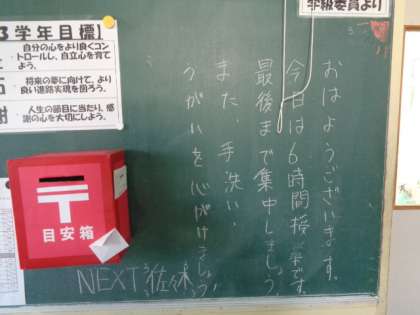 学級委員より
おはようございます。
今日は6時間授業です。
最後まで集中しましょう。
また、手洗い、
うがいを心がけましょう。
NEXT 佐々木
3学年目標
自分の心をより良くコン
トロールし、自立心を育て
よう。
将来の夢に向けて、より
良い進路実現を図ろう。
人生の節目に当たり、感
謝の心を大切にしよう。
〒
目安箱